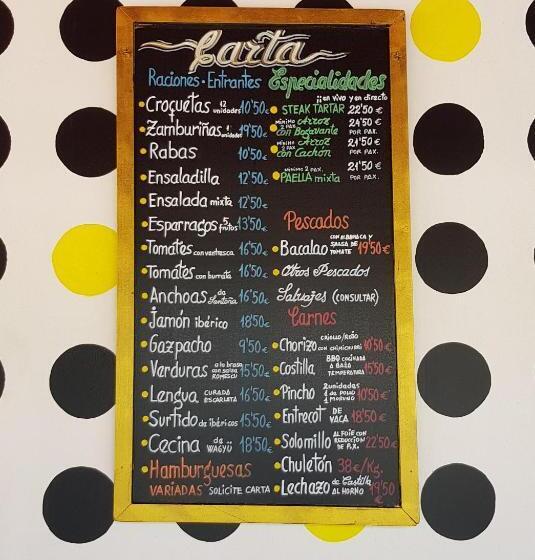 Carta
Raciones · Entrantes
Croquetas 12 unidades 10'50€
Zamburiñas unidades 19'50€
Rabas 10'50€
Ensaladilla 12'50€
Ensalada mixta 12'50€
Esparragos 5 frutos 13'50€
Tomates con ventresca 16'50€
Tomates con burrata 16'50€
Anchoas de Santoña 16'50€
Jamón ibérico 18'50€
Gazpacho 9'50€
Verduras a la brasa con salsa Romescu 15'50€
Lengua CURADA ESCARLATA 16'50€
Surtido de ibéricos 15'50€
Cecina de WAGYÜ 18'50€
Hamburguesas
VARIADAS SOLICITE CARTA
Especialidades
¡¡en vivo y en directo
STEAK TARTAR 22'50 €
MÍNIMO 2 PAX. Arroz con Bogavante 24'50 € POR PAX.
MÍNIMO 2 PAX Arroz con Cachón 21'50 € POR PAX.
MÍNIMO 2 PAX.
PAELLA mixta 21'50 € POR PAX.
Pescados
Bacalao CON ALBAHACA Y SALSA DE TOMATE 19'50€
Otros Pescados
Salvajes (CONSULTAR)
Carnes
Chorizo CRIOLLO/ROJO CON CHIMICHURRI 10'50€
Costilla BBQ COCINADA A BAJA TEMPERATURA 15'50€
Pincho 2 unidades 1 de POLLO 1 MORUNO 10'50€
Entrecot DE VACA 18'50€
Solomillo AL FOIE CON REDUCCIÓN DE P.X. 22'50€
Chuletón 38€/Kg.
Lechazo de Castilla AL HORNO 19'50 €